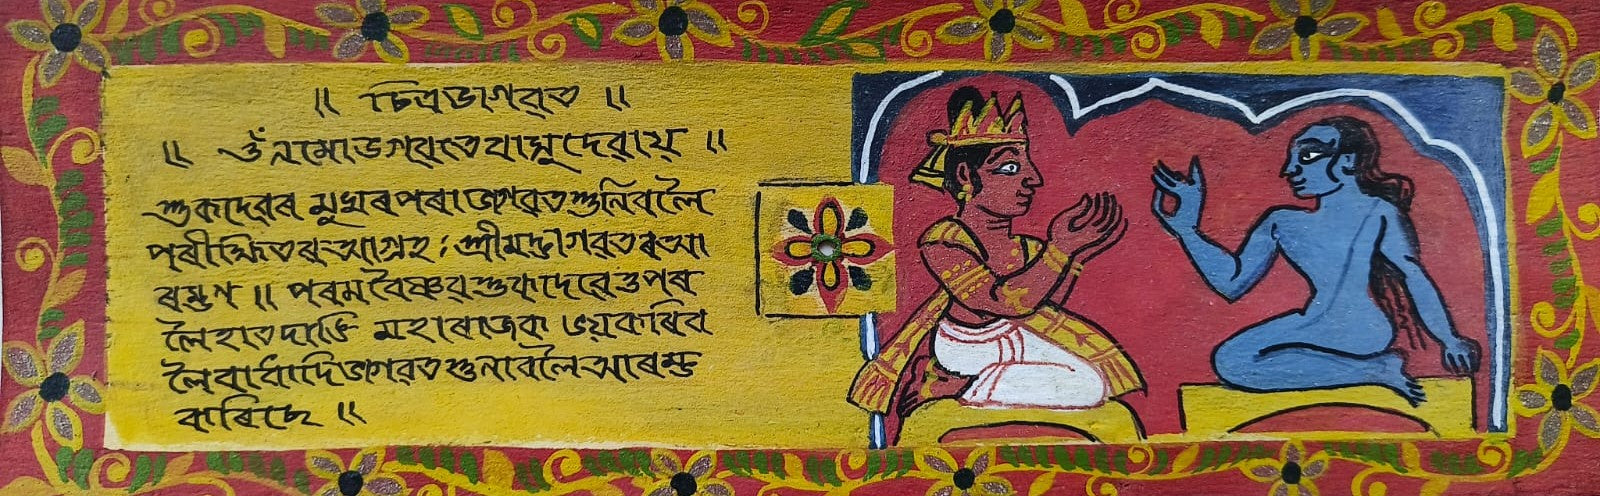 ॥ চিত্ৰভাগৱত ॥
॥ ওঁনমোভগৱতেবাসুদেৱায় ॥
শুকদেৱৰ মুখৰপৰা ভাগৱতশুনিবলৈ
পৰীক্ষিতৰআগ্ৰহ; শ্ৰীমদ্ভাগৱতৰআ
ৰম্ভণ ॥ পৰমবৈষ্ণৱশুকদেৱেওপৰ
লৈহাতদাঙি মহাৰাজক ভয়কৰিব
লৈবাধাদিভাগৱতশুনাবলৈআৰম্ভ
কৰিছে ॥